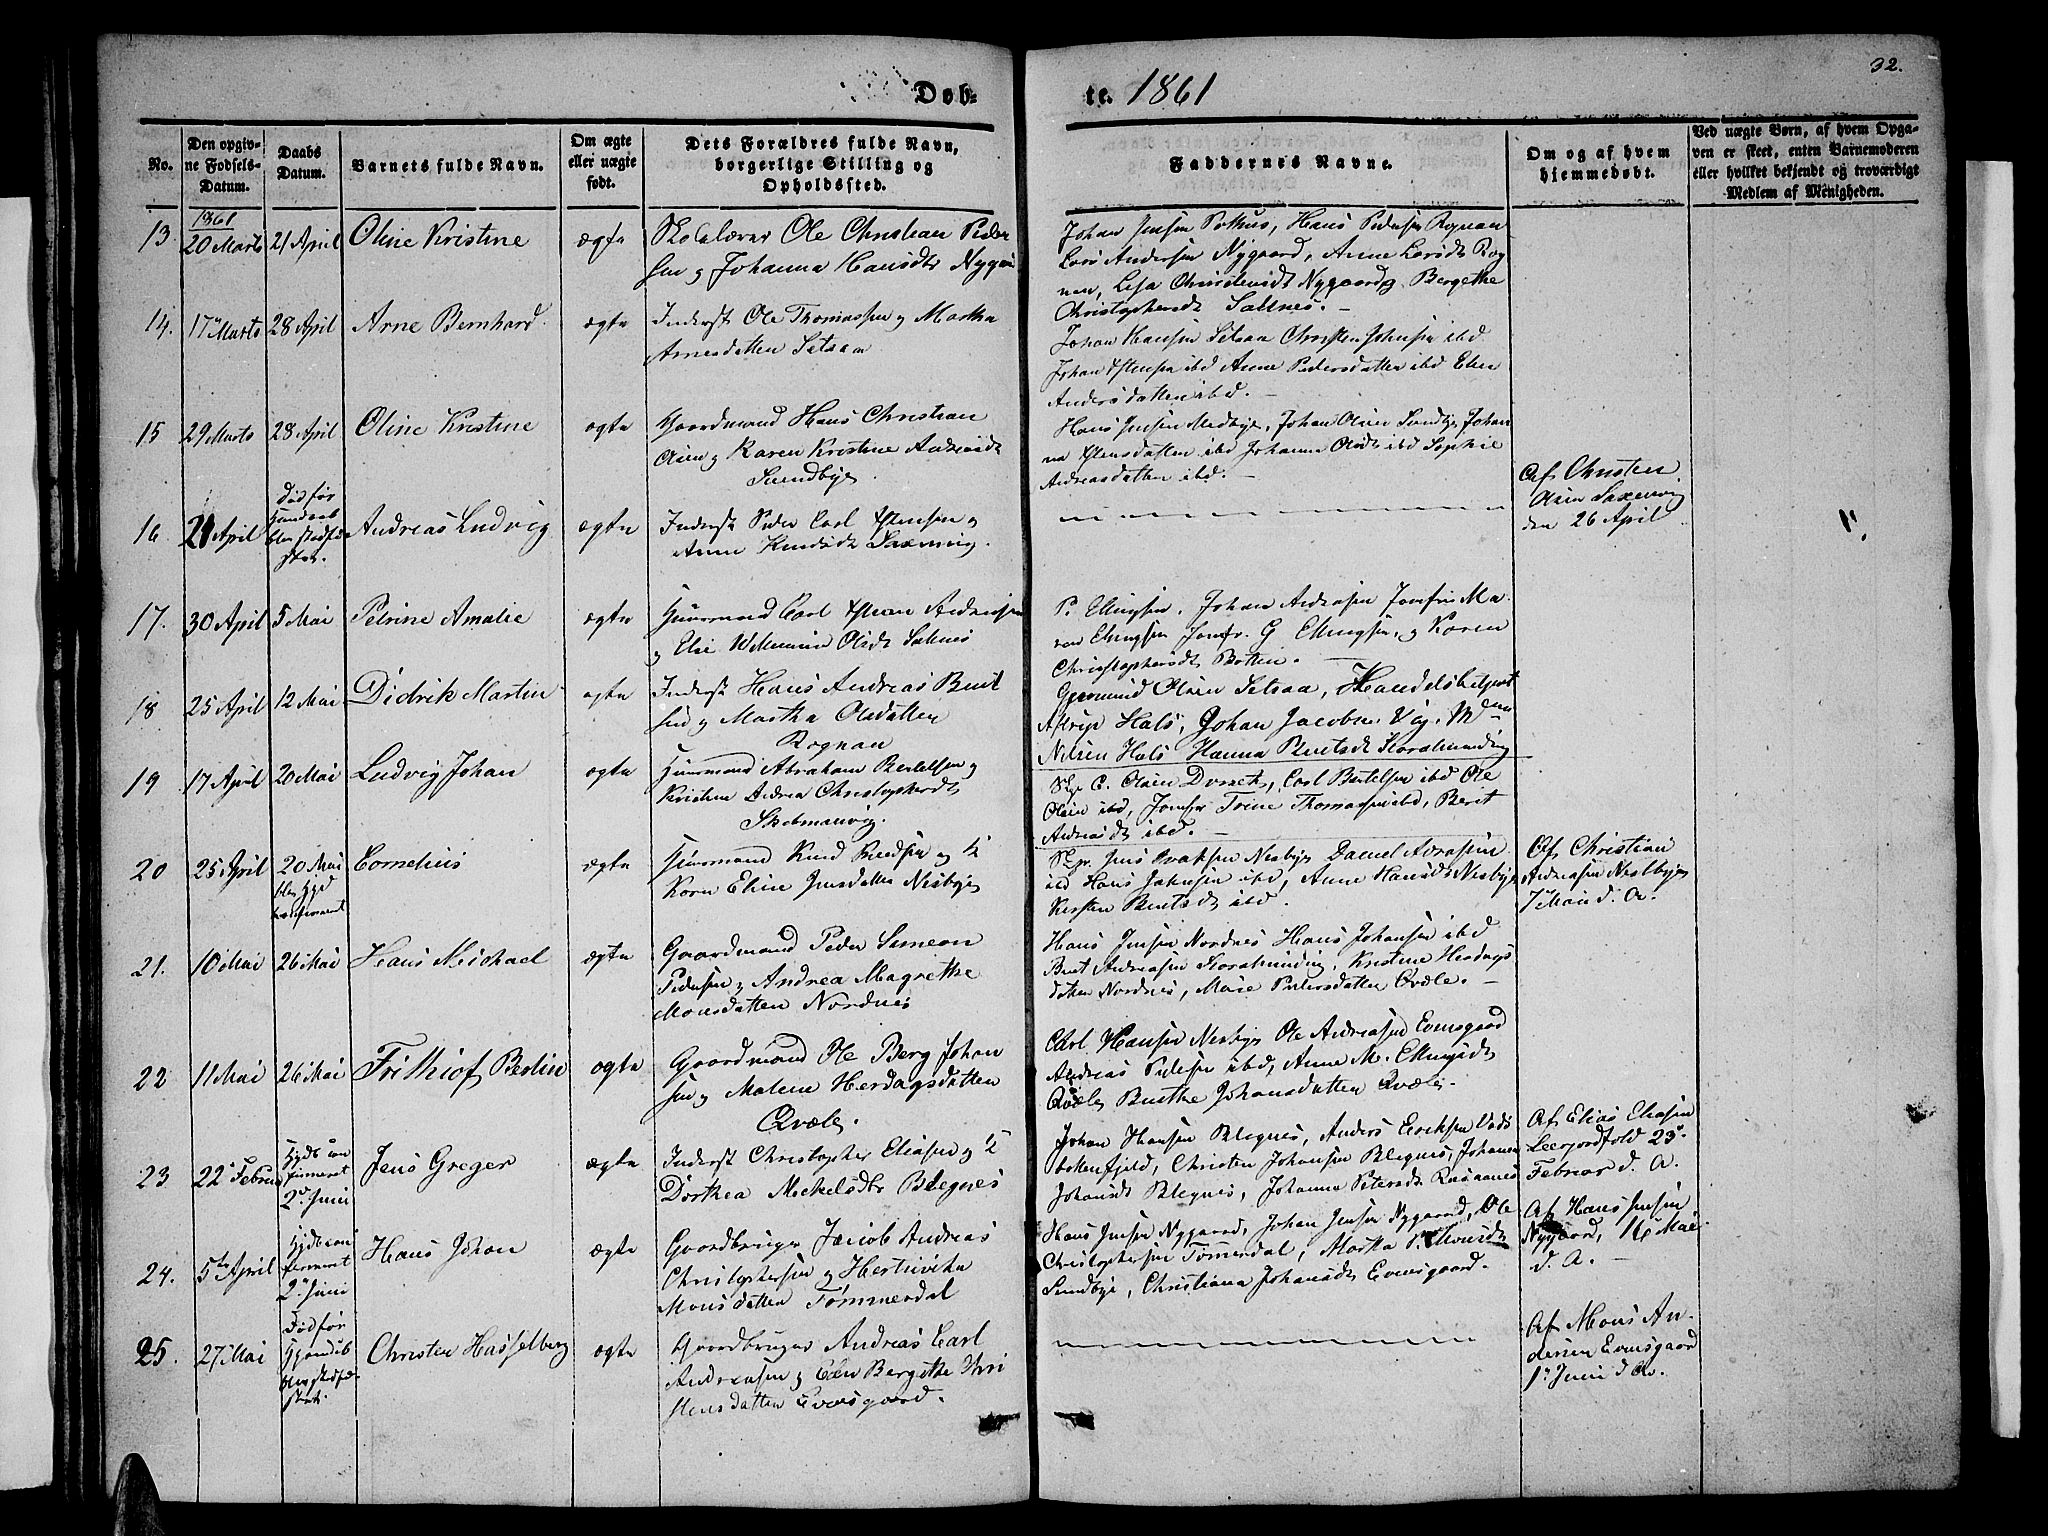 32.
Døb-
te. 1861
No.
Den opgiv-
ne Fødsels-
Datum.
Daabs
Datum.
Barnets fulde Navn.
Om ægte
eller uægte
født.
Dets Forældres fulde Navn,
borgerlige Stilling og
Opholdssted.
Faddernes Navne.
Om og af hvem
hjemmedøbt.
Ved uægte Børn, af hvem Opga-
ven er skeet, enten Barnemoderen
eller hvilket bekjendt og troværdigt
Medlem af Menigheden.
1861
13 20 Marts 21 April Oline Kristine ægte
Skolelærer Ole Christian Peder
sen og Johanna Hansdtr
Johan Jensen Pothus, Hans Pedersen Rognan
Lars Andersen Nygaard, Anne Larsdt Rog
nan, Nygaard og Bergethe
Christophersdt Saltnes.
14. 17 Marts 28 April Arne Bernhard. ægte
Inderst Ole Thomassen og Martha
Arnesdatter Setsaa
Johan Hansen Setsaa Christen Johnsen ibd
Johan Estensen ibd Anne Pedersdatter ibd Ellen
Andersdatter ibd.
15 29 Marts 28 April Oline Kristine ægte
Gaardmand Hans Christian
Olsen og Karen Kristine
Sundbye
Hans Jensen Medbye, Johan Olsen Sundby, Johan
na Estensdatter ibd Johanna Olsdt ibd Sophie
Andreasdatter ibd.
16 21 April Andreas Ludvig ægte
død før
blev stadfæ
stet.
Inderst Peder Carl Estensen og
Anne Knudsdt Saxenvig.
Af Christen
Olsen Saxenvig
den 26 April
17. 30 April 5 Mai Petrine Amalie ægte
Huusmand Carl Andreassen
og Else Willumine Olsdt Saltnes
P. Ellingsen. Johan Andersen Jomfru Ma
ren Ellingsen Jomfr. G Ellingsen, og Karen
Christophersdt Botten.
18 25 April 12 Mai Didrik Martin ægte
Inderst Hans Andreas Bent
sen og Martha Olsdatter
Rognan
Gjermund Olsen Setsaa, Handelsbetjent
Astrup Hals, Johan Jacobsen Vig, Mdm
Nilsen Hals Hanna Bentsdt
19 17 April 20 Mai Ludvig Johan ægte
Huusmand Abraham Bertelsen og
Kristine Andrea Christophersdt
C. Olsen Carl Bertelsen ibd Ole
Olsen ibd, Jomfr Trine Thomassen ibd, Berit
Andreasdt ibd.
20 25 April 20 Mai Cornelius ægte
blev Hjd
konfirmeret
Huusmand Knud Knudsen og
Karn Eline Jensdatter Nesbye
Jens Nesbye Daniel
ibd Hans Johnsen ibd, Anne Hansdt Nesbye
Kirsten Bentsdt ibd.
Af Christian
Andreasen Nestbye
7 Mai d. A.
21. 10 Mai 26 Mai Hans Michael ægte
Gaardmand Peder Simeon
Pedersen og Andrea Magrethe
Monsdatter Nordnes
Hans Jensen Nordnes Hans Johansen ibd
Bent Andreasen Kristine Herdags
datter Nordnes, Marie Pedersdatter Qvæle.
22 11 Mai 26 Mai Frithiof Berlin ægte
Gaardmand Ole Berg Johan
sen og Malene Herdagsdatter
Qvæle.
Carl Hansen Nesbye Ole Andreasen Evensgaard
Andreas Pedersen ibd, Anne M. Ellingsdt
Qvæle Berthe Johansdatter Qvæle.
23 22 Februar Jens Greger ægte
Hjdb con
firmeret
2 Juni
Inderst Christopher Eliasen og
Dorthea Mickelsdtr Blegnes
Johan Hansen Blegnes, Anders Eriksen
Christen Johansen Blegnes, Johanna
Johansdt Blegnes, Johanna Petersdt
Af Elias Eliasen
23
Februar d. A.
24. 5te April Hans Johan ægte
Hjdb con
firmeret
2 Juni
Gaardbruger Jacob Andreas
Christophersen og
Monsdatter Tømmerdal
Hans Jensen Nygaard, Johan Jensen Nygaard, Ole
Christophersen Tømerdal, Martha P. Monsdt
Sundbye, Christiana Johansdt Evensgaard.
Af Hans Jensen
Nygaard, 16 Mai
d. A.
25. 27 Mai Christen Hasselberg ægte
Død før
Hjemdaab
blev stadfæ
stet.
Gaardbruger Andreas Carl
Andreasen og Ellen Bergitte Chri
stensdatter Evensgaard.
Af Mons An-
dersen Evensgaard
1 Juni d A.